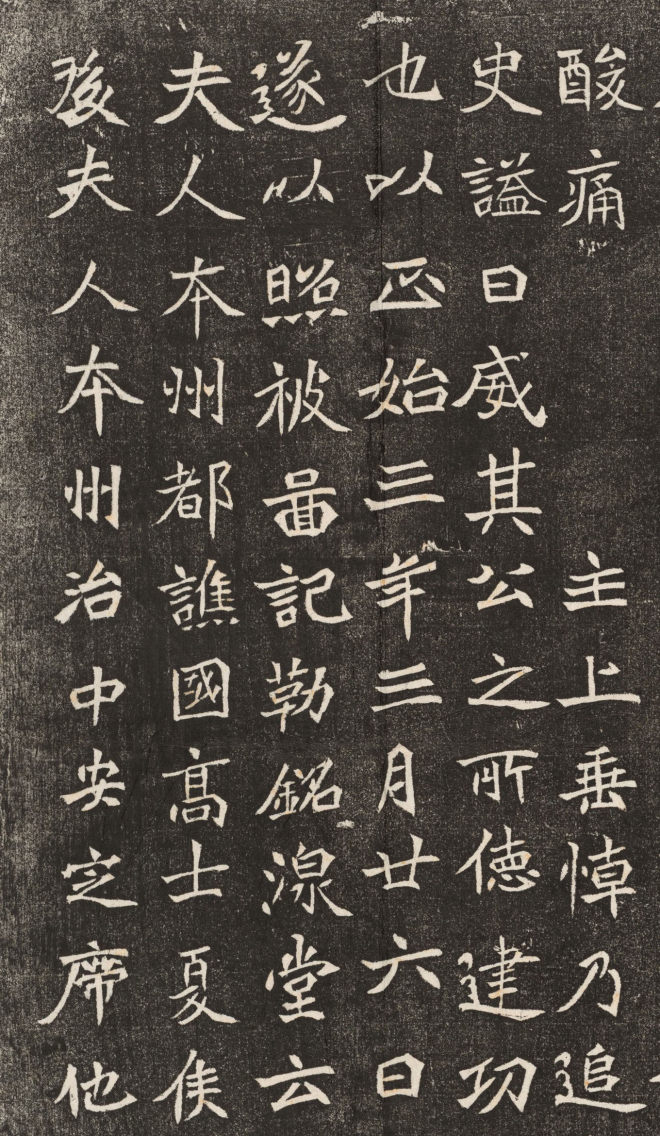 酸痛 主上垂悼乃追
史謚曰威其公之所德建功
也以正始三年三月廿六日
遂以照被啚記勒銘湶堂云
夫人本州都譙國髙士夏侯
後夫人本州治中安定席他